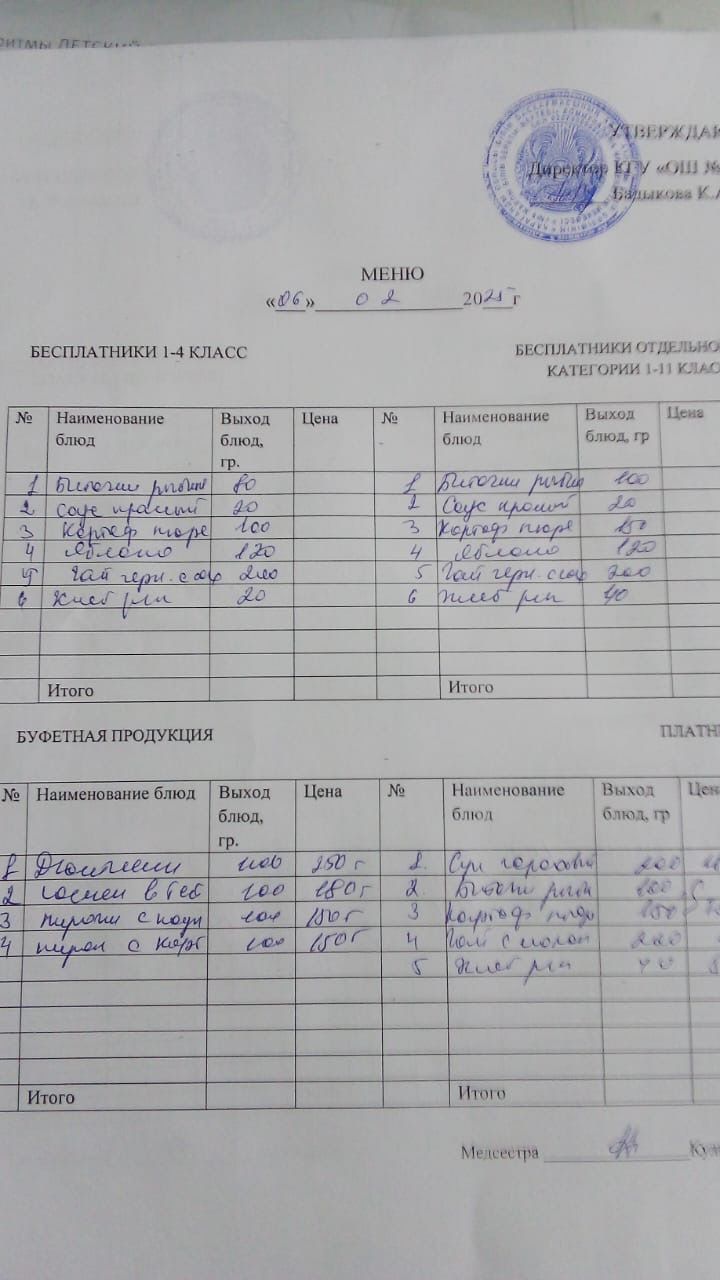 РИТМЫ ДЕТСКИЙ
УТВЕРЖДАЮ
Директор КГУ «ОШ №
Бадыкова К.А
МЕНЮ
«06» 02 2025 г
БЕСПЛАТНИКИ 1-4 КЛАСС
БЕСПЛАТНИКИ ОТДЕЛЬНО
КАТЕГОРИИ 1-11 КЛАС
№ Наименование блюд Выход блюд, гр. Цена № Наименование блюд Выход блюд, гр Цена
1 Биточки рыбные 80 1 Биточки рыбн 100
2 Соус красный 20 2 Соус красный 20
3 Картоф пюре 100 3 Картоф пюре 150
4 Яблоко 120 4 Яблоко 120
5 Чай черн. с сах 200 5 Чай черн. с сах 200
6 Хлеб рж 20 6 Хлеб рж 40
Итого Итого
БУФЕТНАЯ ПРОДУКЦИЯ ПЛАТН
№ Наименование блюд Выход блюд, гр. Цена № Наименование блюд Выход блюд, гр Цен
1 100 250 г 1. Суп горохов 200
2 в тес 100 180 г 2. Биточки рыбн 100
3 пирожки с 100 150 г 3 Картоф пюре 150
4 пирож с карт 100 150 г 4 Чай с молок 200
5 Хлеб рж 40
Итого Итого
Медсестра Куж